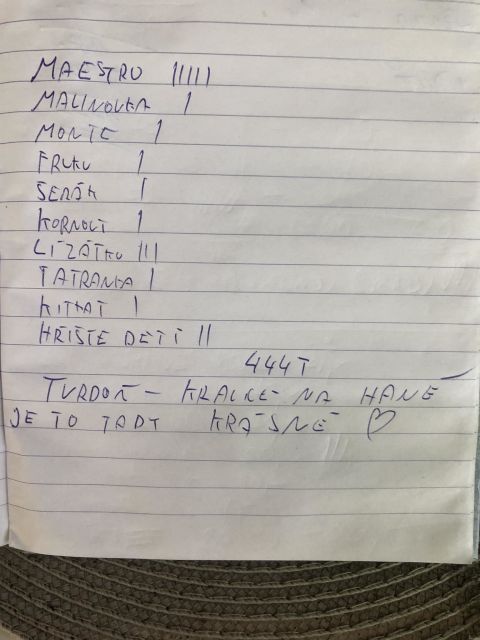 MAESTRO |||||
MALINOVKA |
MONTE |
FRUKU |
SENÁK |
KORNOUT |
LÍZÁTKU |||
TATRANKA |
KITKAT |
HŘIŠTE DETÍ ||
444T
TVRDOŇ - KRALICE NA HANÉ
JE TO TADY KRÁSNÉ ♡